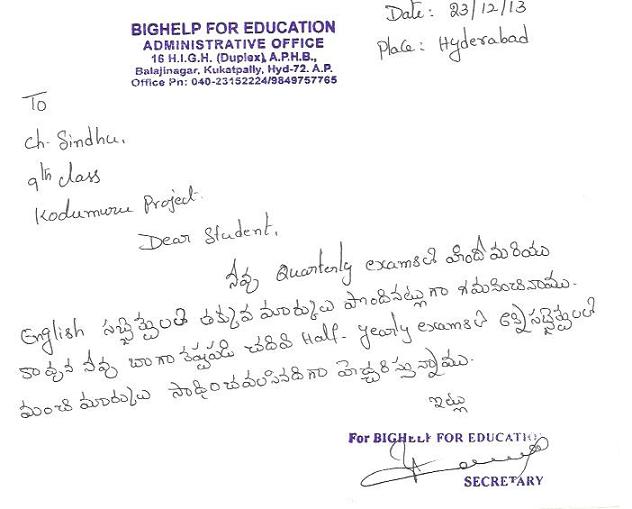 BIGHELP FOR EDUCATION
ADMINISTRATIVE OFFICE
16 H.I.G.H. (Duplex), A.P.H.B.,
Balajinagar, Kukatpally, Hyd-72. A.P.
Office Pn: 040-23152224/9849757765
Date: 23/12/13
Place: Hyderabad
To
Ch. Sindhu,
9th class
Kodumuru Project.
Dear Student,
నీవు Quarterly examsలో హిందీ మరియు
English సబ్జెక్ట్లలో తక్కువ మార్కులు పొందినట్లుగా గమనించినాము.
కావున నీవు బాగా కష్టపడి చదివి Half-yearly examsలో అన్ని సబ్జెక్ట్లలో
మంచి మార్కులు సాధించవలసినదిగా హెచ్చరిస్తున్నాము.
ఇట్లు
For BIGHELP FOR EDUCATION
SECRETARY